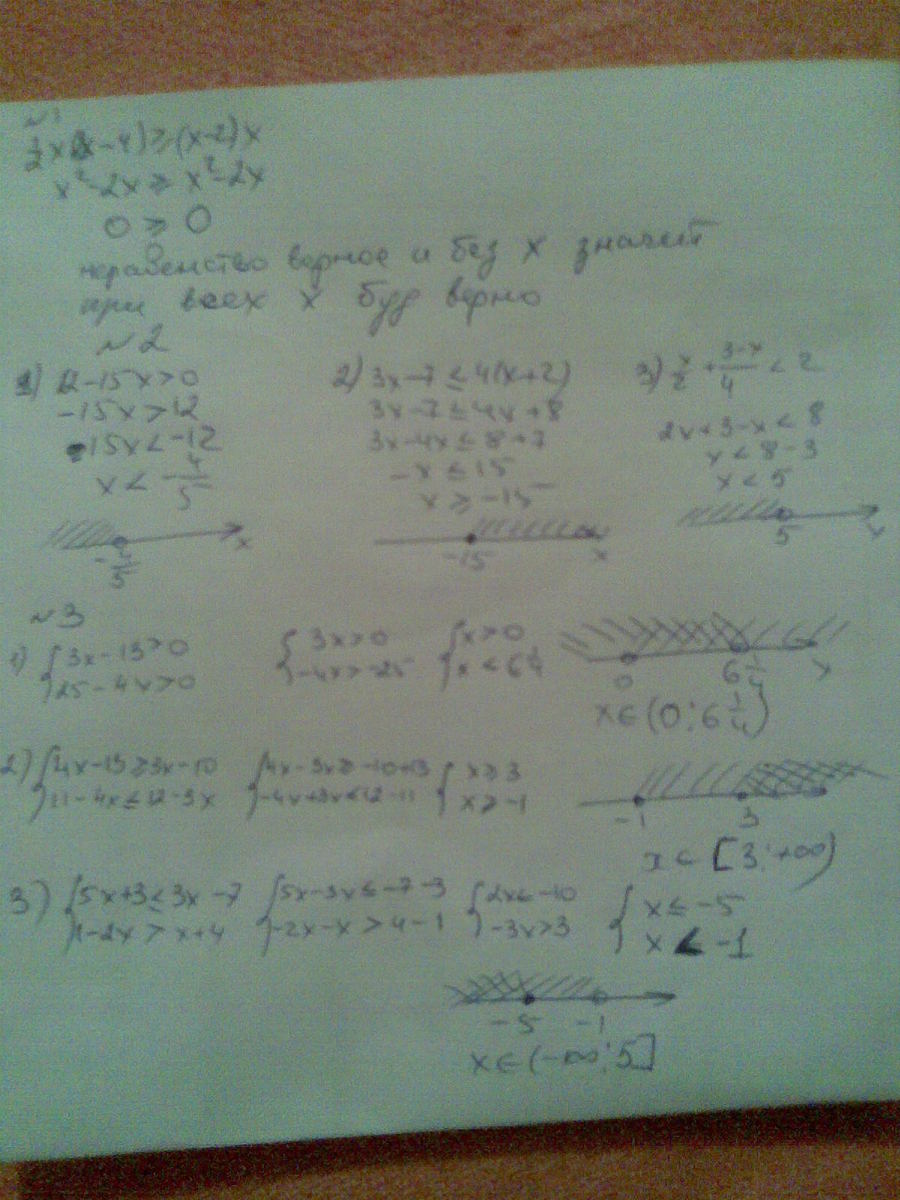 №1
½x(2x-4)≥(x-2)x
x²-2x≥x²-2x
0≥0
неравенство верное и без x значит
при всех x буд верно
№2
1) 12-15x>0
-15x>12
15x<-12
x<-4/5
-4/5 x
2) 3x-7≤4(x+2)
3x-7≤4x+8
3x-4x≤8+7
-x≤15
x≥-15
-15 x
3) x/2+(3-x)/4<2
2x+3-x<8
x<8-3
x<5
5 x
№3
1) {3x-15>0 {3x>0 {x>0
{25-4x>0 {-4x>-25 {x<6¼
0 6¼ x
x∈(0;6¼)
2) {4x-13≥3x-10 {4x-3x≥-10+13 {x≥3
{11-4x≤12-3x {-4x+3x≤12-11 {x≥-1
-1 3
x∈[3;+∞)
3) {5x+3≤3x-7 {5x-3x≤-7-3 {2x≤-10 {x≤-5
{1-2x>x+4 {-2x-x>4-1 {-3x>3 {x<-1
-5 -1
x∈(-∞;5]